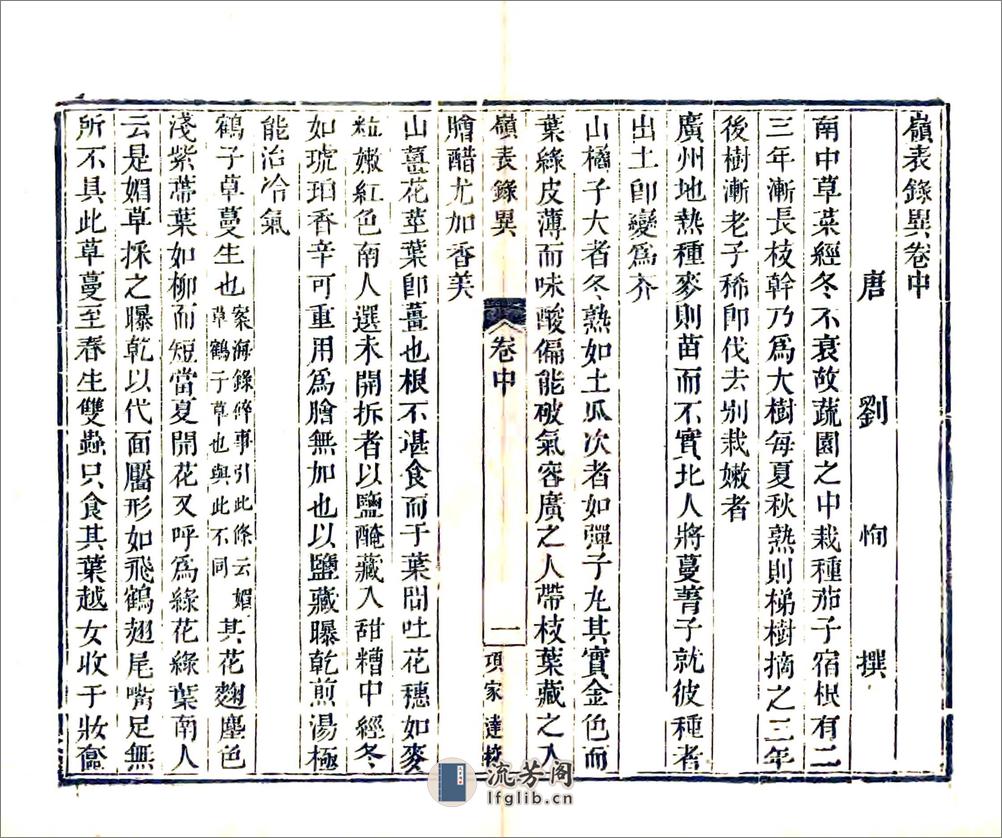 嶺表錄異卷中
唐 劉恂 撰
南中草菜經冬不衰故蔬園之中栽種茄子宿根有二
三年漸長枝幹乃爲大樹每夏秋熟則梯樹摘之三年
後樹漸老子稀卽伐去別栽嫩者
廣州地熱種麥則苗而不實北人將蔓菁子就彼種者
出土卽變爲芥
山橘子大者冬熟如土瓜次者如彈子丸其實金色而
葉綠皮薄而味酸偏能破氣容廣之人帶枝葉藏之入
嶺表錄異
卷中
一
項家達校
膾醋尤加香美
山薑花莖葉卽薑也根不堪食而于葉間吐花穗如麥
粒嫩紅色南人選未開拆者以鹽醃藏入甜糟中經冬
如琥珀香辛可重用爲膾無加也以鹽藏曝乾煎湯極
能治冷氣
鶴子草蔓生也案海錄碎事引此條云媚草鶴子草也與此不同其花麴塵色
淺紫蔕葉如柳而短當夏開花又呼爲綠花綠葉南人
云是媚草採之曝乾以代面靨形如飛鶴翅尾嘴足無
所不具此草蔓至春生雙蟲只食其葉越女收于妝奩
流芳阁
lfglib.cn